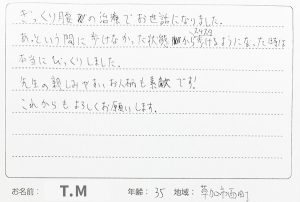 ぎっくり腰の治療でお世話になりました。
あっという間に歩けなかった状態からスタスタ歩けるようになった時は
本当にびっくりしました。
先生の親しみやすいお人柄も素敵です!
これからもよろしくお願いします。
お名前: T.M 年齢: 35 地域: 草加市西町